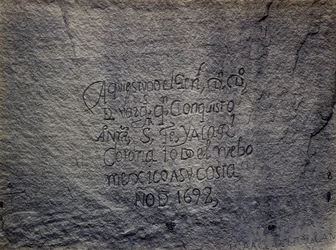 Aqui estuvo el Gen.l, Dn, Do,
De Vargas, qn Conquisto
ANtra, S, Fe, Y A la Rl
Corona todo el nuebo
mexico A Su costa
Año D 1692,